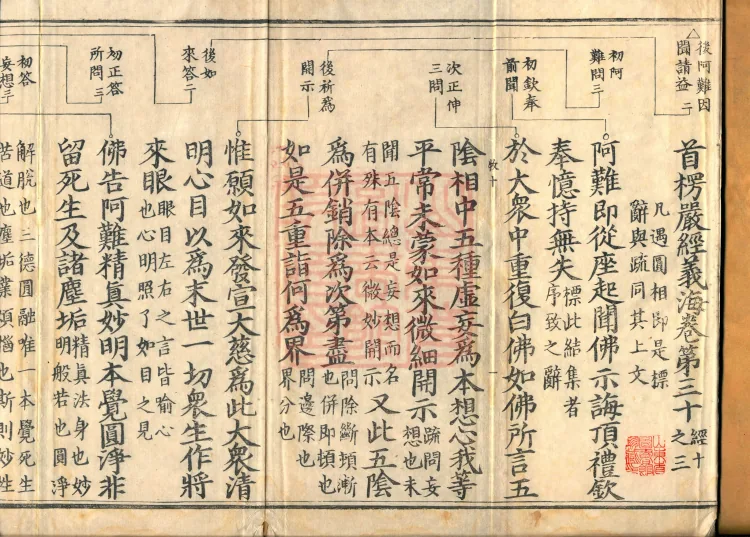 後阿難因
聞請益二
初阿
難問三
初欽奉
前聞
次正伸
三問
後祈為
開示
後如
來答二
初正答
所問三
初答
妄想三
首楞嚴經義海卷第三十
經十
之三
凡遇圓相即是標
辭與疏同其上文
阿難即從座起聞佛示誨頂禮欽
奉憶持無失
標此結集者
序致之辭
於大衆中重復白佛如佛所言五
教十
陰相中五種虛妄爲本想心我等
平常未蒙如來微細開示
疏問妄
想也未
聞五陰總是妄想而名
有殊有本云微妙開示
又此五陰
爲併銷除爲次第盡
問除斷頓漸
也併即頓也
如是五重詣何爲界
問邊際也
界分也
惟願如來發宣大慈爲此大衆清
明心目以爲末世一切衆生作將
來眼
眼目左右之言皆喻心
也心明照了如目之見
佛告阿難精真妙明本覺圓淨非
留死生及諸塵垢
精真法身也妙
明般若也圓淨
解脫也三德圓融唯一本覺死生
苦道也塵垢業煩惱也斯則妙性